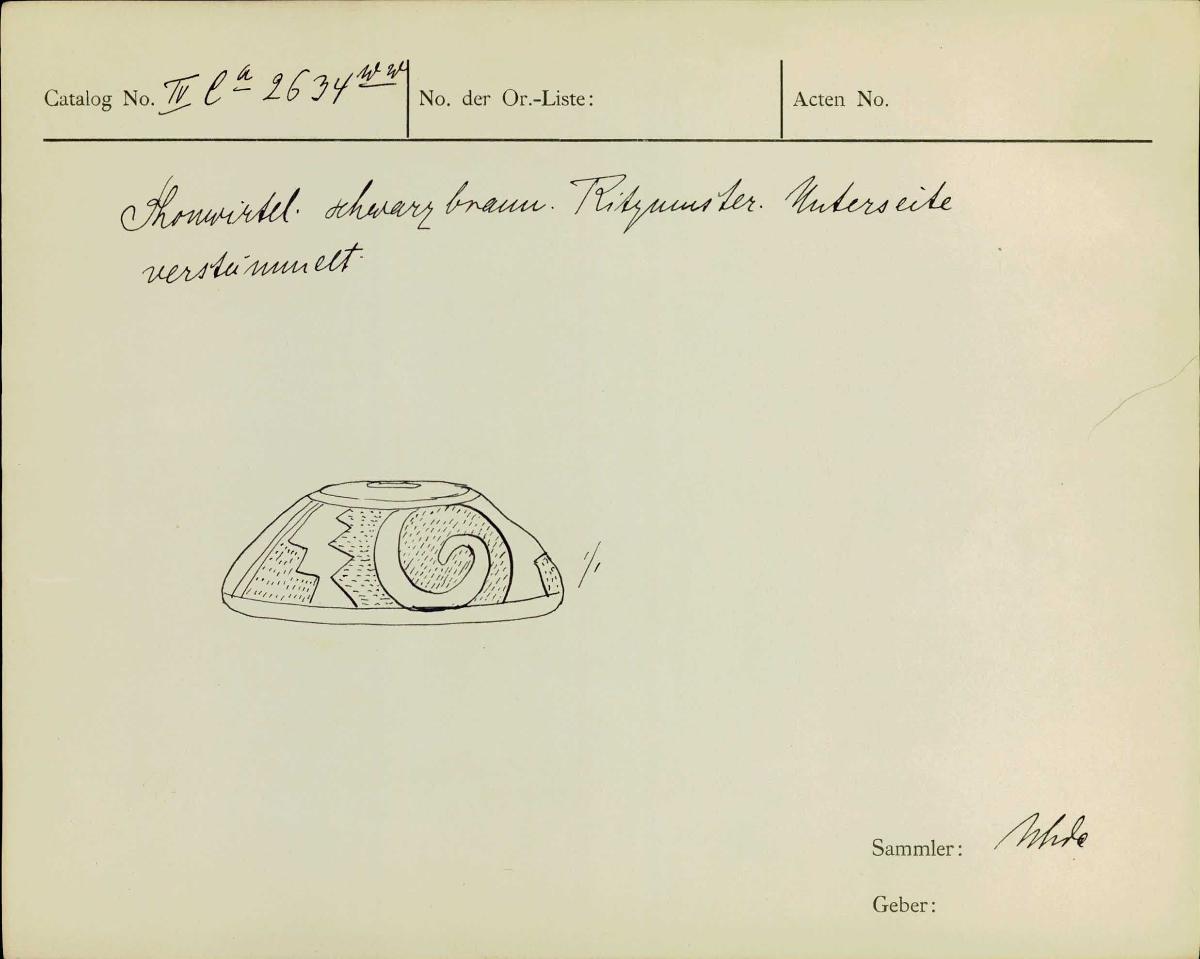 Catalog No. IV Ca 2634 ww No. der Or.-Liste: Acten No.
Thonwirtel. schwarzbraun. Ritzmuster. Unterseite
verstümmelt.
1/1
Sammler: Uhde
Geber: